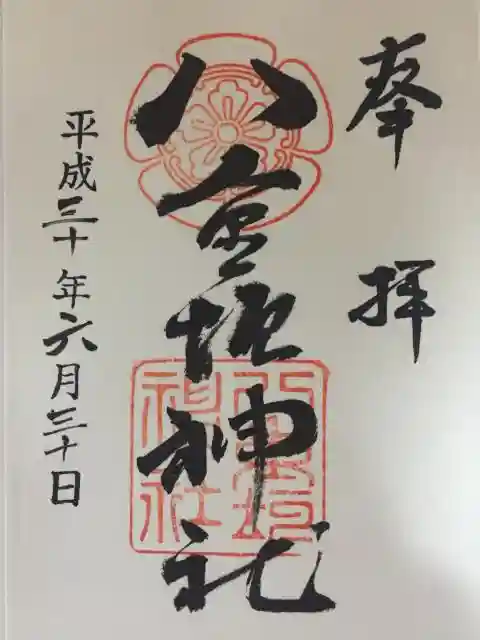 奉拝
八重垣神社
八重垣
神社
平成三十年六月三十日